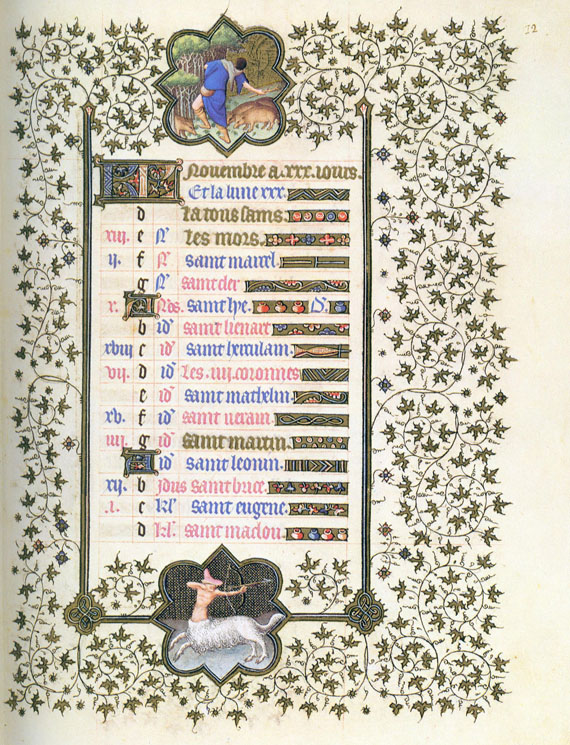 12
Novembre a .xxx. iours.
Et la lune xxx.
d la tous sains.
xiii. e Nᵒ les mors.
ii. f Nᵒ saint marcel.
g Nᵒ saint cler.
x. A Nōs. saint lye. D.
b idᵒ saint lienart
xviii c idᵒ saint herculain.
vii. d idᵒ les .iiii. coronnes
e idᵒ saint mathelin.
xv. f idᵒ saint verain.
iiii. g idᵒ saint martin.
A idᵒ saint leonin.
xii. b jdus saint brice.
.i. c kl' saint eugene.
d kl' saint maclou.